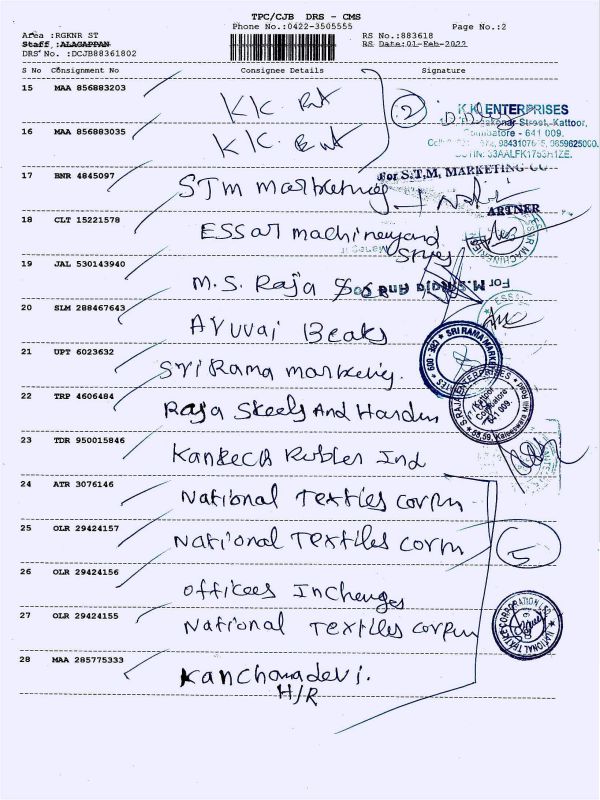 TPC/CJB DRS - CMS
Phone No.:0422-3505555 Page No.:2
Area :RGKNR ST RS No.:883618
Staff :ALAGAPPAN RS Date:01-Feb-2022
DRS No. :DCJB88361802
S No Consignment No Consignee Details Signature
15 MAA 856883203
KK. Ent
2
K.K. ENTERPRISES
Street, Kattoor,
Coimbatore - 641 009.
16 MAA 856883035
KK. Ent
17 BNR 4845097
STM marketing
For S.T.M. MARKETING CO
ARTNER
18 CLT 15221578
ESSar machineryand
Stores
19 JAL 530143940
M.S. Raja
For M.S. Raja And
20 SLM 288467643
Avuvai Beaks
21 UPT 6023632
Sri Rama marketing.
SRI RAMA MARKE
22 TRP 4606484
Raja Steels And Hardw
Kattoor
Coimbatore
641 009.
23 TDR 950015846
Rubber Ind
24 ATR 3076146
National Textiles corpn
25 OLR 29424157
National Textiles corpn
5
26 OLR 29424156
offices Incharges
27 OLR 29424155
National Textiles corpn
NATIONAL TEXTILE CORPORATION LTD
28 MAA 285775333
Kanchanadevi.
H/R